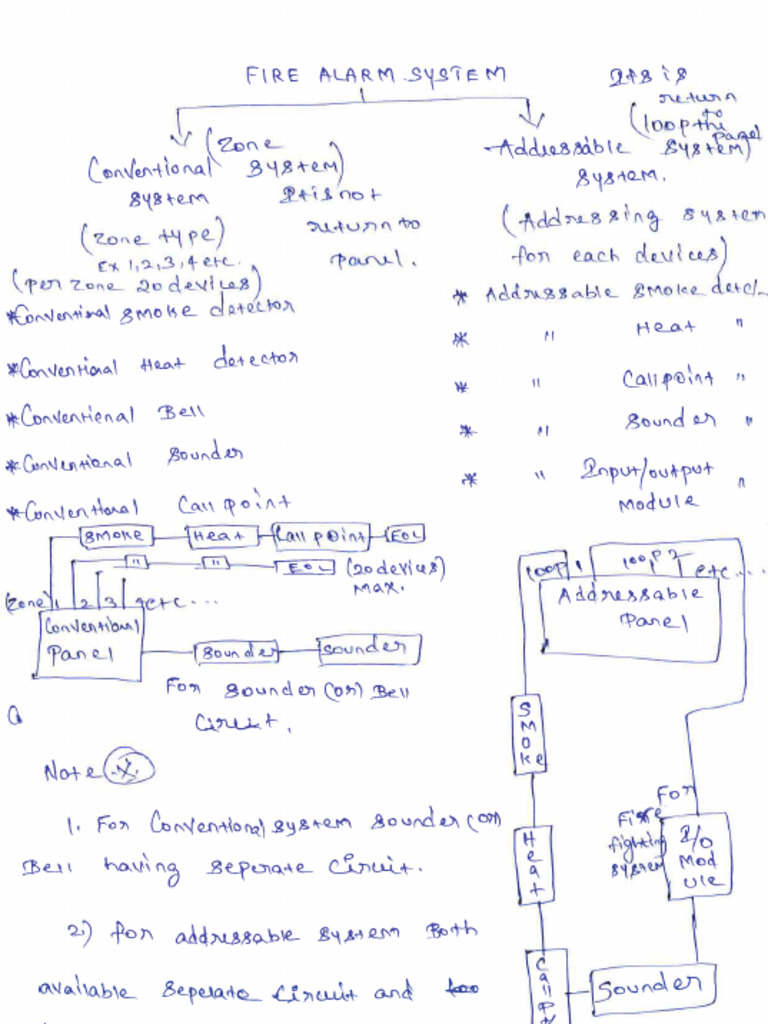 FIRE ALARM SYSTEM
Conventional (Zone system)
system
It is not
return to
panel.
(Zone type)
Ex 1,2,3,4 etc.
(per zone 20 devices)
*Conventional smoke detector
*Conventional Heat detector
*Conventional Bell
*Conventional Sounder
*Conventional Call point
Its is
return
to
(loop the panel
Addressable system)
system.
(Addressing system
for each devices)
* Addressable smoke detc/-
* " Heat "
* " Callpoint "
* " Sounder "
* " Input/output "
module
smoke Heat Call point EOL
" " EOL (20 devices)
max.
(zone) 1 2 3 4 etc ...
Conventional
Panel
Sounder Sounder
For Sounder (or) Bell
Circuit.
loop 1 loop 2 etc....
Addressable
Panel
Smoke
Heat
Call pt
Sounder
I/O
Mod
ule
For
Fire
fighting
system
Note
1. For Conventional system sounder (or)
Bell having seperate Circuit.
2) for addressable system Both
available Seperate Circuit and